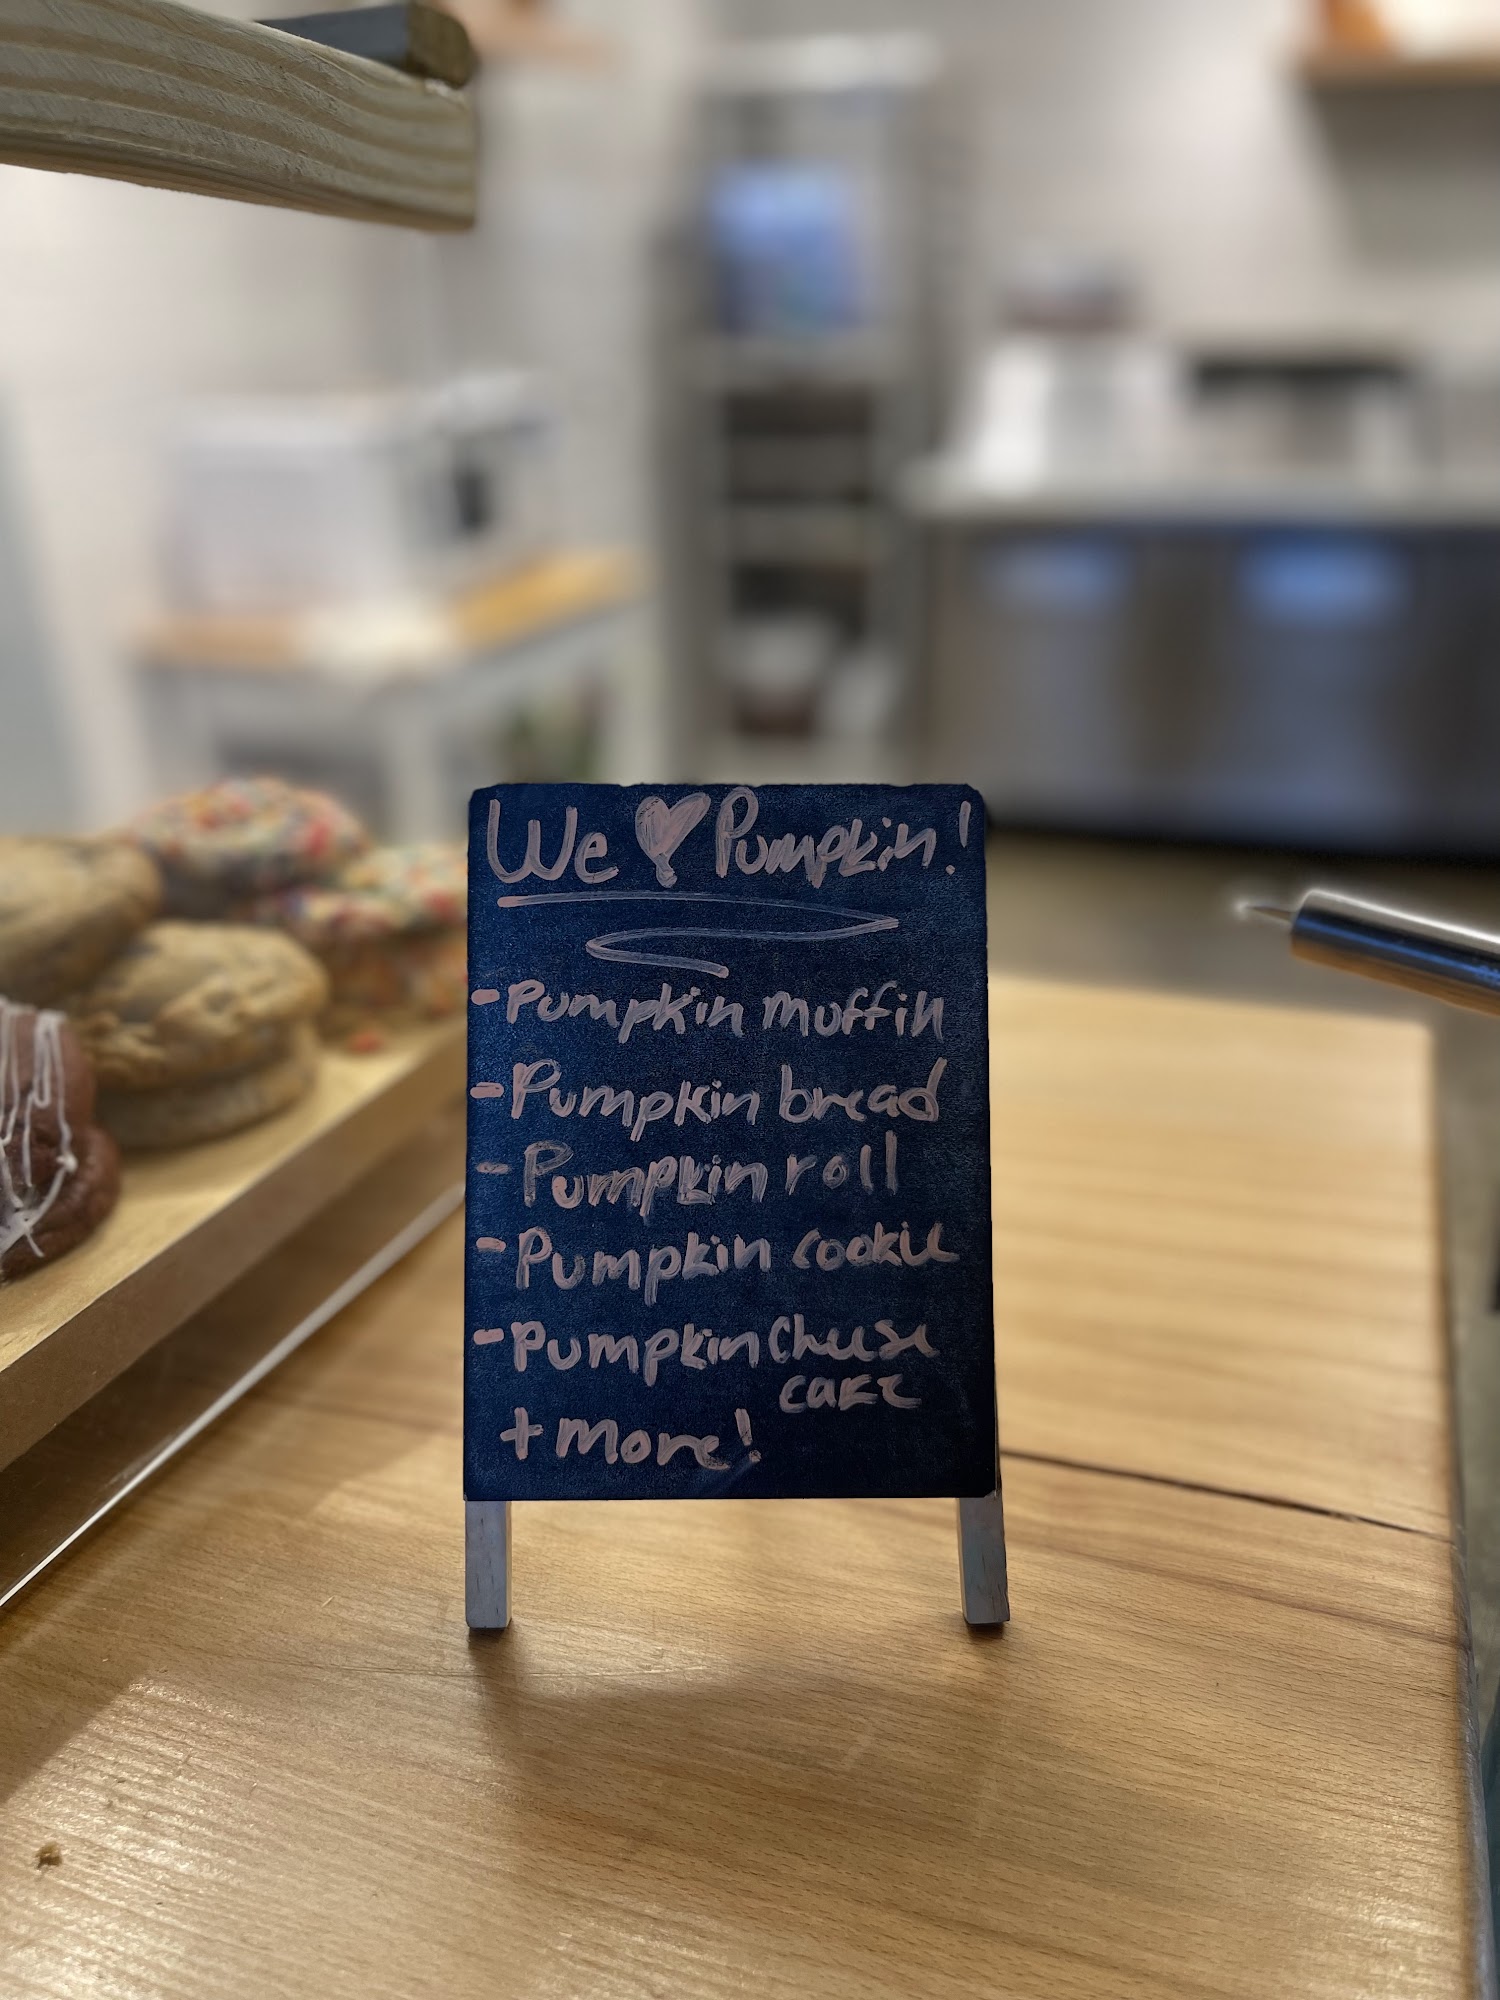 We ♥ Pumpkin!
- Pumpkin muffin
- Pumpkin bread
- Pumpkin roll
- Pumpkin cookie
- Pumpkin Cheese
cake
+ more!